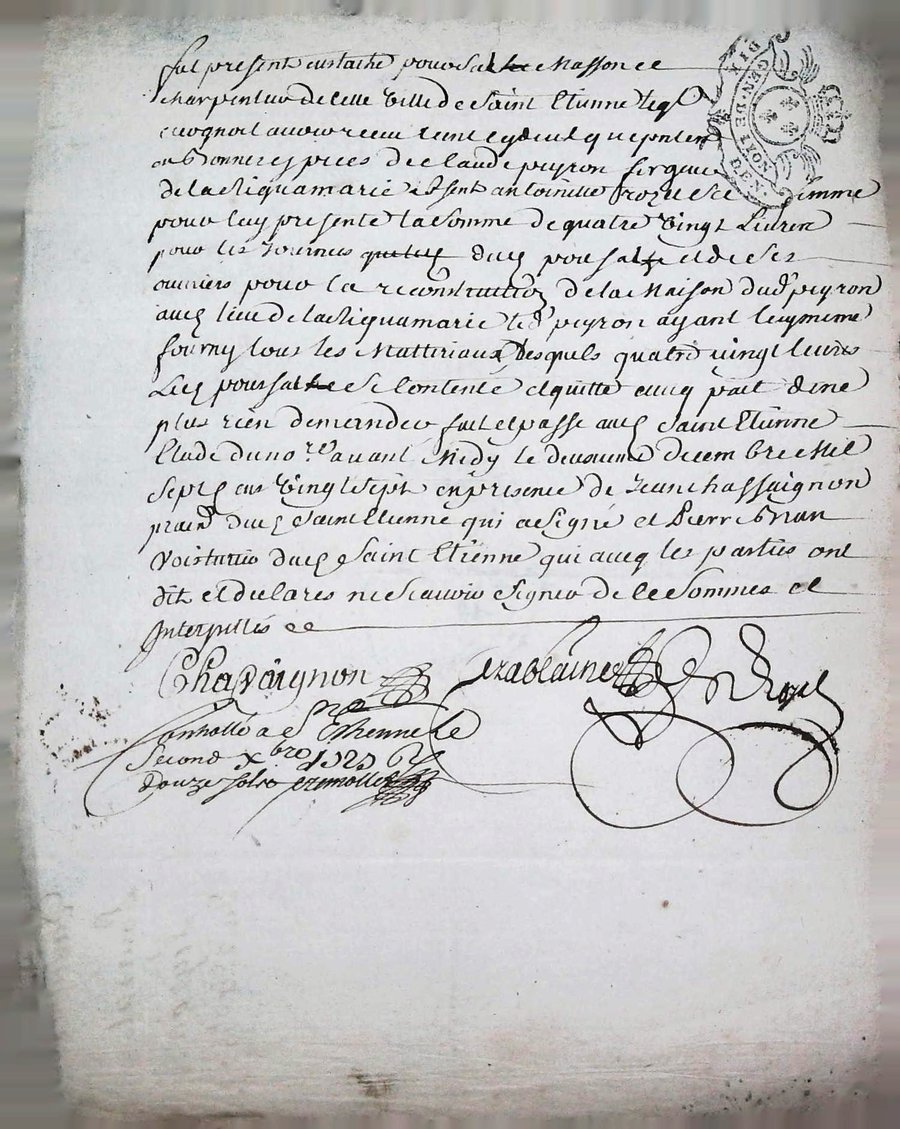 fut present eustache poussa Masson et
charpentier de cette Ville de Saint Etienne leql
recognoit avoir receu tant cydevt que presentemt
en bonnes espices de claude peyron forgeur
de la Riquamarie absent antoinette Royet Sa femme
pour luy presente la Somme de quatre Vingt Livres
pour les Journees dud poussa et de Ses
ouvriers pour la reconstruction de la Maison dud peyron
aud lieu de la Riquamarie led peyron ayant luy meme
fourny tous les Matteriaux Desquels quatre vingt livres
Led poussa Se Contente et quitte avecq pait de ne
plus rien demander fait et passe aud Saint Etienne
Etude du nore avant Midy le deuxieme decembre Mil
Sept Cens Vingt Sept en presence de Jean chassaignon
pratn dud Saint Etienne qui a Signé et Pierre
Voisturier dud Saint Etienne qui avecq les parties ont
dit et declares ne Scavoir Signer de ce Sommes et
Interpelles
Chassaignon
Controllé a St Ethienne le
Second xbre 1727
douze sols
DIX
GEN. DE LYON
DEN.